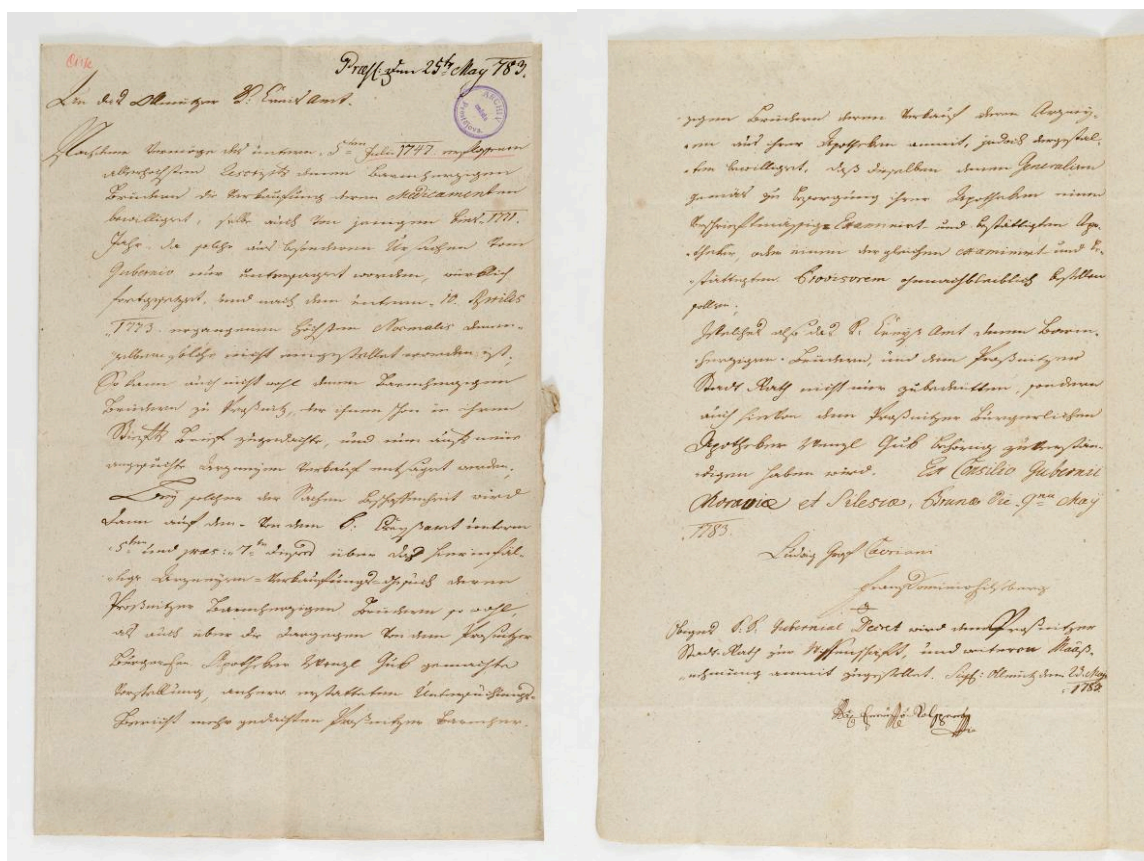 Præs: den 25ten May 783.
An das Ollmützer K: Creis Amt.
ARCHIV
města
Prostějova
Nachdeme Vermöge des unterm 5ten Julii 1747 erflossenen
allerhöchsten Rescripts denen Barmherzigen
Brüdern die Verkauffung deren Medicamenten
bewilliget, selbe auch von jenigen bis 1771.
Jahr, da solche aus besonderen Ursachen vom
Gubernio nur untersaget worden, würklich
fortgesezet, und nach dem unterm 10. Aprilis
1773. ergangenen höchsten Normalis denen-
selben solche nicht eingestellet worden ist.
So kann auch nicht wohl denen Barmherzigen
Brüdern zu Proßnitz, der ihnen schon in ihrem
Stifts Brief zugedachte, und nun aufs neue
angesuchte Arzeneyen Verkauf entsaget werden.
Bey solcher der Sachen Beschaffenheit wird
dann auf den von dem K: Creysamt unterm
5ten und præs: 7ten über das hierinfäl-
lige Arzeneyen-Verkauffungs-Gesuch deren
Proßnitzer Barmherzigen Brüdern so wohl,
als auch über die dargegen von dem Proßnitzer
Bürgerlichen Apotheker Wenzl Gub gemachte
Vorstellung, anhero erstatteten Untersuchungs-
Bericht mehr gedachten Proßnitzer Barmher-
zigen Brüdern deren Verkauf deren Arzney-
en aus ihrer Apotheken anmit, jedoch dergestal-
ten bewilliget, daß dieselben denen Generalien
gemäs zu Besorgung ihrer Apotheken einen
Vorschriftmässig Examinirt und bestättigten Apo-
theker, oder einen dergleichen examinirt und be-
stättigten Provisorem ohnnachbleiblich bestellen
sollen;
Welches also das K: Creys Amt denen Barm-
herzigen Brüdern, und dem Proßnitzer
Stadt Rath nicht nur zubedeütten, sondern
auch hievon dem Proßnitzer bürgerlichen
Apotheker Wenzl Gub behörig zuverstän-
digen haben wird. Ex Consilio Gubernii
Moraviæ et Silesiæ, Brunæ die 9na May
1783.
Ludwig Graf Cavriani
Obiges K. K. Gubernial Decret wird dem Proßnitzer
Stadt Rath zur Wissenschaft, und weiteren Maaß-
nehmung anmit zugestellet. Sig: Ollmütz den 23. May
1783